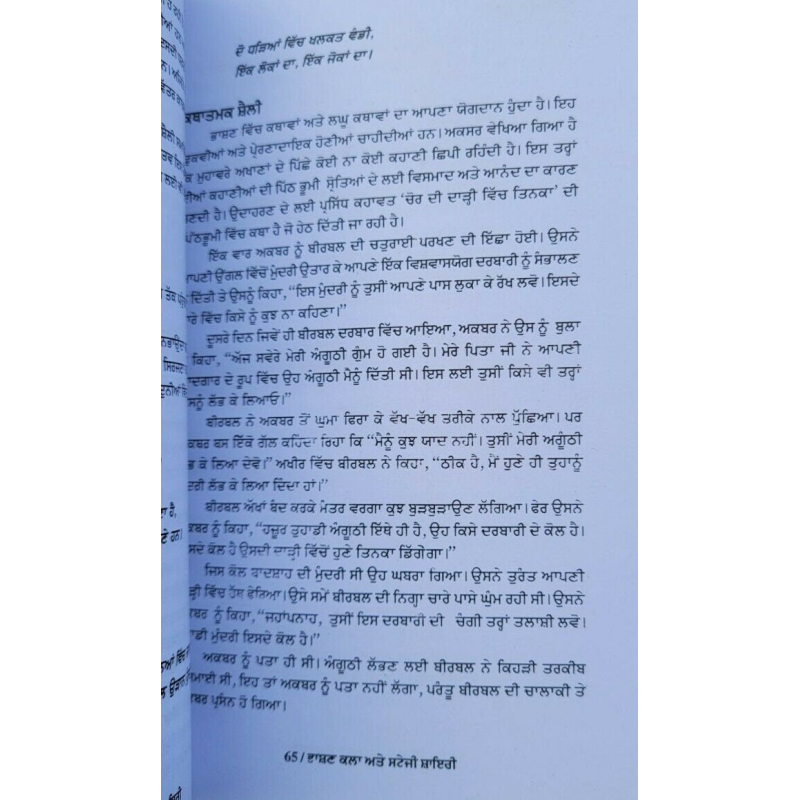 ਦੋ ਧੜਿਆਂ ਵਿੱਚ ਖਲਕਤ ਵੰਡੀ,
ਇੱਕ ਲੋਕਾਂ ਦਾ, ਇੱਕ ਜੋਕਾਂ ਦਾ।
ਕਥਾਤਮਕ ਸ਼ੈਲੀ
ਭਾਸ਼ਣ ਵਿੱਚ ਕਥਾਵਾਂ ਅਤੇ ਲਘੂ ਕਥਾਵਾਂ ਦਾ ਆਪਣਾ ਯੋਗਦਾਨ ਹੁੰਦਾ ਹੈ। ਇਹ
ਅਤੇ ਪ੍ਰੇਰਣਾਦਾਇਕ ਹੋਣੀਆਂ ਚਾਹੀਦੀਆਂ ਹਨ। ਅਕਸਰ ਵੇਖਿਆ ਗਿਆ ਹੈ
ਕ ਮੁਹਾਵਰੇ ਅਖਾਣਾਂ ਦੇ ਪਿੱਛੇ ਕੋਈ ਨਾ ਕੋਈ ਕਹਾਣੀ ਛਿਪੀ ਰਹਿੰਦੀ ਹੈ। ਇਸ ਤਰ੍ਹਾਂ
ਦੀਆਂ ਕਹਾਣੀਆਂ ਦੀ ਪਿੱਠ ਭੂਮੀ ਸ੍ਰੋਤਿਆਂ ਦੇ ਲਈ ਵਿਸਮਾਦ ਅਤੇ ਆਨੰਦ ਦਾ ਕਾਰਣ
ਬਣਦੀ ਹੈ। ਉਦਾਹਰਣ ਦੇ ਲਈ ਪ੍ਰਸਿੱਧ ਕਹਾਵਤ ‘ਚੋਰ ਦੀ ਦਾੜ੍ਹੀ ਵਿੱਚ ਤਿਨਕਾ’ ਦੀ
ਪਿੱਠਭੂਮੀ ਵਿੱਚ ਕਥਾ ਹੈ ਜੋ ਹੇਠ ਦਿੱਤੀ ਜਾ ਰਹੀ ਹੈ।
ਇੱਕ ਵਾਰ ਅਕਬਰ ਨੂੰ ਬੀਰਬਲ ਦੀ ਚਤੁਰਾਈ ਪਰਖਣ ਦੀ ਇੱਛਾ ਹੋਈ। ਉਸਨੇ
ਆਪਣੀ ਉਂਗਲ ਵਿੱਚੋਂ ਮੁੰਦਰੀ ਉਤਾਰ ਕੇ ਆਪਣੇ ਇੱਕ ਵਿਸ਼ਵਾਸਯੋਗ ਦਰਬਾਰੀ ਨੂੰ ਸੰਭਾਲਣ
ਦਿੱਤੀ ਤੇ ਉਸਨੂੰ ਕਿਹਾ, “ਇਸ ਮੁੰਦਰੀ ਨੂੰ ਤੁਸੀਂ ਆਪਣੇ ਪਾਸ ਲੁਕਾ ਕੇ ਰੱਖ ਲਵੋ। ਇਸਦੇ
ਰੇ ਵਿੱਚ ਕਿਸੇ ਨੂੰ ਕੁਝ ਨਾ ਕਹਿਣਾ।”
ਦੂਸਰੇ ਦਿਨ ਜਿਵੇਂ ਹੀ ਬੀਰਬਲ ਦਰਬਾਰ ਵਿੱਚ ਆਇਆ, ਅਕਬਰ ਨੇ ਉਸ ਨੂੰ ਬੁਲਾ
ਕਿਹਾ, “ਅੱਜ ਸਵੇਰੇ ਮੇਰੀ ਅੰਗੂਠੀ ਗੁੰਮ ਹੋ ਗਈ ਹੈ। ਮੇਰੇ ਪਿਤਾ ਜੀ ਨੇ ਆਪਣੀ
ਾਦਗਾਰ ਦੇ ਰੂਪ ਵਿੱਚ ਉਹ ਅੰਗੂਠੀ ਮੈਨੂੰ ਦਿੱਤੀ ਸੀ। ਇਸ ਲਈ ਤੁਸੀਂ ਕਿਸੇ ਵੀ ਤਰ੍ਹਾਂ
ਸਨੂੰ ਲੱਭ ਕੇ ਲਿਆਓ।”
ਬੀਰਬਲ ਨੇ ਅਕਬਰ ਤੋਂ ਘੁਮਾ ਫਿਰਾ ਕੇ ਵੱਖ-ਵੱਖ ਤਰੀਕੇ ਨਾਲ ਪੁੱਛਿਆ। ਪਰ
ਕਬਰ ਬਸ ਇੱਕੋ ਗੱਲ ਕਹਿੰਦਾ ਰਿਹਾ ਕਿ “ਮੈਨੂੰ ਕੁਝ ਯਾਦ ਨਹੀਂ। ਤੁਸੀਂ ਮੇਰੀ ਅੰਗੂਠੀ
ਭ ਕੇ ਲਿਆ ਦੇਵੋ।” ਅਖੀਰ ਵਿੱਚ ਬੀਰਬਲ ਨੇ ਕਿਹਾ, “ਠੀਕ ਹੈ, ਮੈਂ ਹੁਣੇ ਹੀ ਤੁਹਾਨੂੰ
ਦਰੀ ਲੱਭ ਕੇ ਲਿਆ ਦਿੰਦਾ ਹਾਂ।”
ਬੀਰਬਲ ਅੱਖਾਂ ਬੰਦ ਕਰਕੇ ਮੰਤਰ ਵਰਗਾ ਕੁਝ ਬੁੜਬੁੜਾਉਣ ਲੱਗਿਆ। ਫੇਰ ਉਸਨੇ
ਕਬਰ ਨੂੰ ਕਿਹਾ, “ਹਜ਼ੂਰ ਤੁਹਾਡੀ ਅੰਗੂਠੀ ਇੱਥੇ ਹੀ ਹੈ, ਉਹ ਕਿਸੇ ਦਰਬਾਰੀ ਦੇ ਕੋਲ ਹੈ।
ਸਦੇ ਕੋਲ ਹੈ ਉਸਦੀ ਦਾੜ੍ਹੀ ਵਿੱਚੋਂ ਹੁਣੇ ਤਿਨਕਾ ਡਿੱਗੇਗਾ।”
ਜਿਸ ਕੋਲ ਬਾਦਸ਼ਾਹ ਦੀ ਮੁੰਦਰੀ ਸੀ ਉਹ ਘਬਰਾ ਗਿਆ। ਉਸਨੇ ਤੁਰੰਤ ਆਪਣੀ
ੜ੍ਹੀ ਵਿੱਚ ਹੱਥ ਫੇਰਿਆ। ਉਸੇ ਸਮੇਂ ਬੀਰਬਲ ਦੀ ਨਿਗ੍ਹਾ ਚਾਰੇ ਪਾਸੇ ਘੁੰਮ ਰਹੀ ਸੀ। ਉਸਨੇ
ਕਬਰ ਨੂੰ ਕਿਹਾ, “ਜਹਾਂਪਨਾਹ, ਤੁਸੀਂ ਇਸ ਦਰਬਾਰੀ ਦੀ ਚੰਗੀ ਤਰ੍ਹਾਂ ਤਲਾਸ਼ੀ ਲਵੋ।
ਾਡੀ ਮੁੰਦਰੀ ਇਸਦੇ ਕੋਲ ਹੈ।”
ਅਕਬਰ ਨੂੰ ਪਤਾ ਹੀ ਸੀ। ਅੰਗੂਠੀ ਲੱਭਣ ਲਈ ਬੀਰਬਲ ਨੇ ਕਿਹੜੀ ਤਰਕੀਬ
ਮਾਈ ਸੀ, ਇਹ ਤਾਂ ਅਕਬਰ ਨੂੰ ਪਤਾ ਨਹੀਂ ਲੱਗਾ, ਪਰੰਤੂ ਬੀਰਬਲ ਦੀ ਚਾਲਾਕੀ ਤੇ
ਕਬਰ ਪ੍ਰਸੰਨ ਹੋ ਗਿਆ।
65/ ਭਾਸ਼ਣ ਕਲਾ ਅਤੇ ਸਟੇਜੀ ਸ਼ਾਇਰੀ